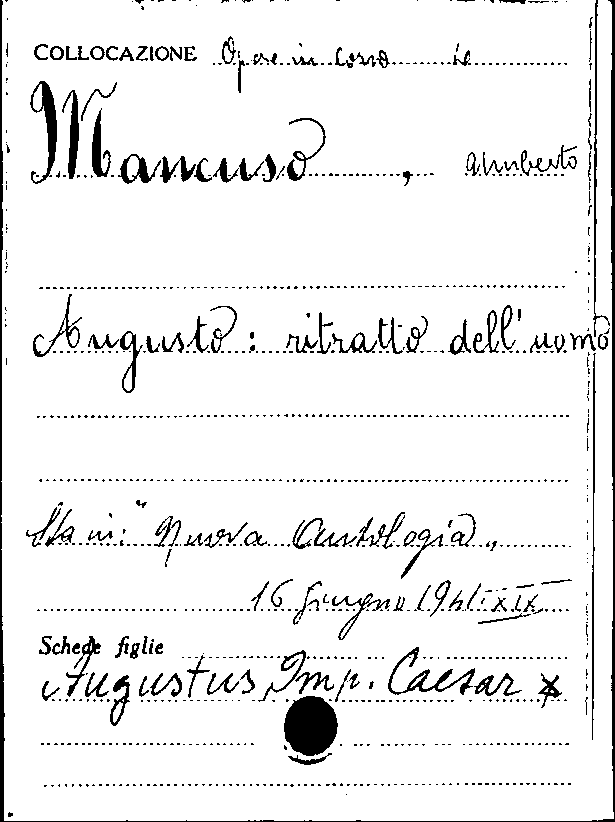 COLLOCAZIONE Opere in corso 10
Mancuso, Umberto
Augusto: ritratto dell'uomo
Sta in: "Nuova Antologia"
16 Giugno 1941. XIX
Schede figlie
Augustus, Imp. Caesar